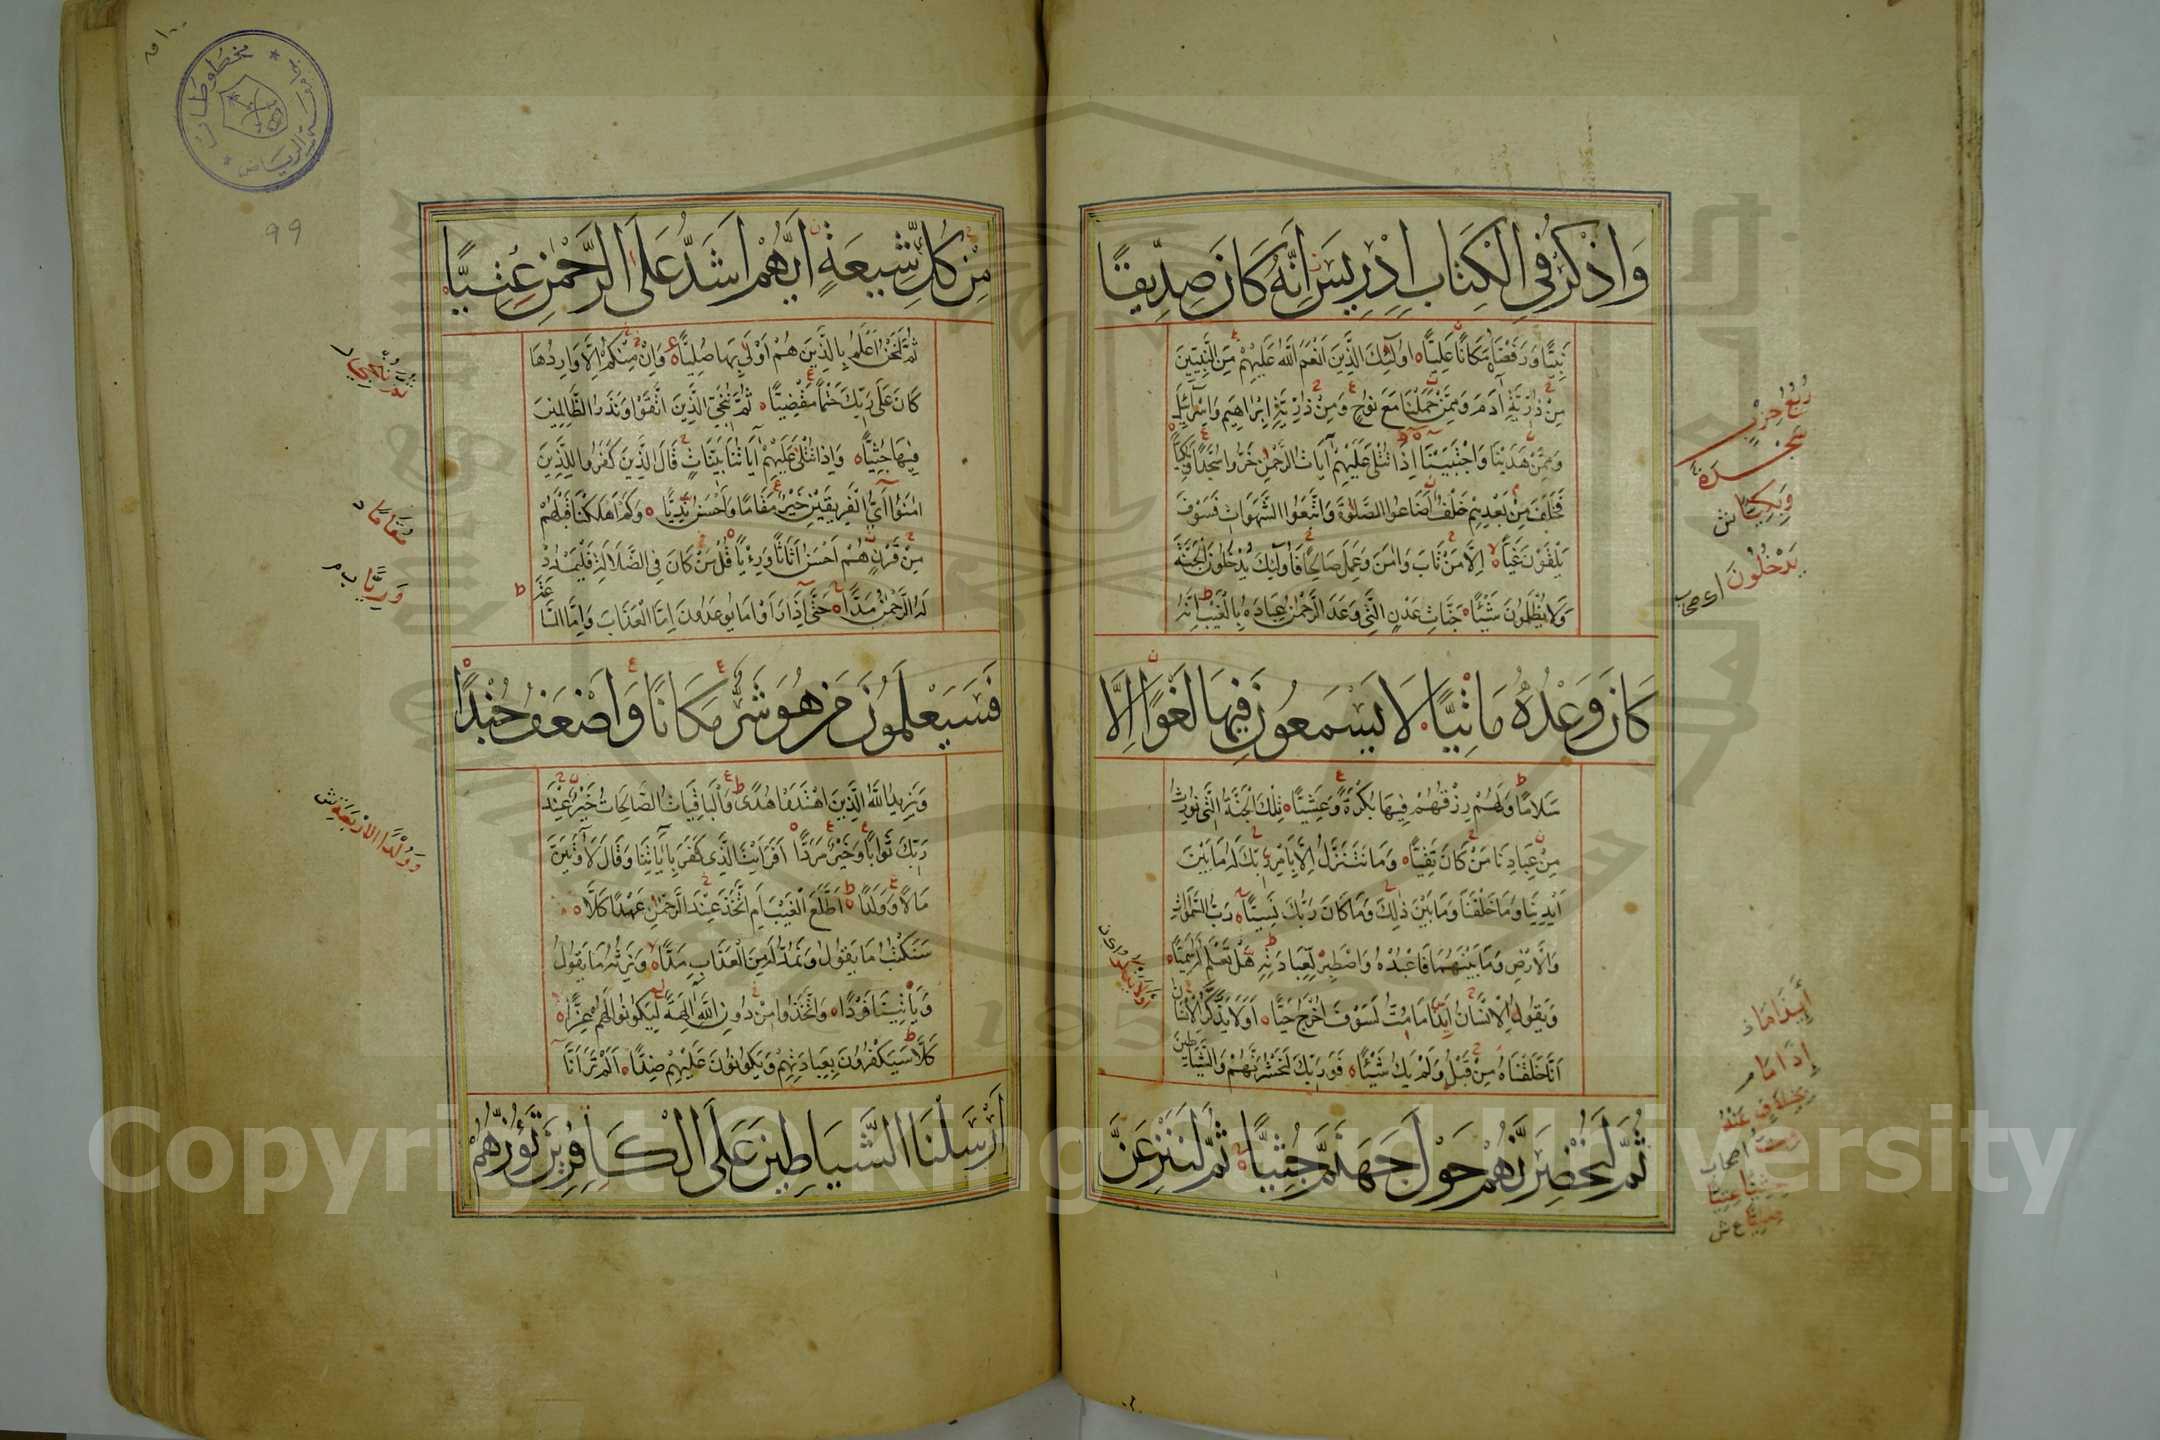 وَاذْكُرْ فِي الْكِتَابِ اِدْرِيسَ اِنَّهُ كَانَ صِدِّيقًا
نَبِيًّا وَرَفَعْنَاهُ مَكَانًا عَلِيًّا اُولٰٓئِكَ الَّذِينَ اَنْعَمَ اللّٰهُ عَلَيْهِمْ مِنَ النَّبِيِّينَ
مِنْ ذُرِّيَّةِ اٰدَمَ وَمِمَّنْ حَمَلْنَا مَعَ نُوحٍ وَمِنْ ذُرِّيَّةِ اِبْرٰاهِيمَ وَاِسْرَائِيلَ
وَمِمَّنْ هَدَيْنَا وَاجْتَبَيْنَا اِذَا تُتْلٰى عَلَيْهِمْ اٰيَاتُ الرَّحْمٰنِ خَرُّوا سُجَّدًا وَبُكِيًّا
فَخَلَفَ مِنْ بَعْدِهِمْ خَلْفٌ اَضَاعُوا الصَّلٰوةَ وَاتَّبَعُوا الشَّهَوَاتِ فَسَوْفَ
يَلْقَوْنَ غَيًّا اِلَّا مَنْ تَابَ وَاٰمَنَ وَعَمِلَ صَالِحًا فَاُولٰٓئِكَ يُدْخَلُونَ الْجَنَّةَ
وَلَا يُظْلَمُونَ شَيْئًا جَنَّاتِ عَدْنٍ الَّتِي وَعَدَ الرَّحْمٰنُ عِبَادَهُ بِالْغَيْبِ اِنَّهُ
كَانَ وَعْدُهُ مَاْتِيًّا لَا يَسْمَعُونَ فِيهَا لَغْوًا اِلَّا
سَلَامًا وَلَهُمْ رِزْقُهُمْ فِيهَا بُكْرَةً وَعَشِيًّا تِلْكَ الْجَنَّةُ الَّتِي نُورِثُ
مِنْ عِبَادِنَا مَنْ كَانَ تَقِيًّا وَمَا نَتَنَزَّلُ اِلَّا بِاَمْرِ رَبِّكَ لَهُ مَا بَيْنَ
اَيْدِينَا وَمَا خَلْفَنَا وَمَا بَيْنَ ذٰلِكَ وَمَا كَانَ رَبُّكَ نَسِيًّا رَبُّ السَّمٰوَاتِ
وَالْاَرْضِ وَمَا بَيْنَهُمَا فَاعْبُدْهُ وَاصْطَبِرْ لِعِبَادَتِهِ هَلْ تَعْلَمُ لَهُ سَمِيًّا
وَيَقُولُ الْاِنْسَانُ اَئِذَا مَا مِتُّ لَسَوْفَ اُخْرَجُ حَيًّا اَوَلَا يَذَّكَّرُ الْاِنْسَانُ
اَنَّا خَلَقْنَاهُ مِنْ قَبْلُ وَلَمْ يَكُ شَيْئًا فَوَرَبِّكَ لَنَحْشُرَنَّهُمْ وَالشَّيَاطِينَ
ثُمَّ لَنُحْضِرَنَّهُمْ حَوْلَ جَهَنَّمَ جُثِيًّا ثُمَّ لَنَنْزِعَنَّ
رُبْعُ حِزْبٍ
سَجْدَةٌ
وَبِكِيًّا ش
يَدْخُلُونَ
أَئِذَا مَا
إِذَا مَا م
مِنْ كُلِّ شِيعَةٍ اَيُّهُمْ اَشَدُّ عَلَى الرَّحْمٰنِ عِتِيًّا
ثُمَّ لَنَحْنُ اَعْلَمُ بِالَّذِينَ هُمْ اَوْلٰى بِهَا صُلِيًّا وَاِنْ مِنْكُمْ اِلَّا وَارِدُهَا
كَانَ عَلٰى رَبِّكَ حَتْمًا مَقْضِيًّا ثُمَّ نُنَجِّي الَّذِينَ اتَّقَوْا وَنَذَرُ الظَّالِمِينَ
فِيهَا جُثِيًّا وَاِذَا تُتْلٰى عَلَيْهِمْ اٰيَاتُنَا بَيِّنَاتٍ قَالَ الَّذِينَ كَفَرُوا لِلَّذِينَ
اٰمَنُوا اَيُّ الْفَرِيقَيْنِ خَيْرٌ مَقَامًا وَاَحْسَنُ نَدِيًّا وَكَمْ اَهْلَكْنَا قَبْلَهُمْ
مِنْ قَرْنٍ هُمْ اَحْسَنُ اَثَاثًا وَرِءْيًا قُلْ مَنْ كَانَ فِي الضَّلَالَةِ فَلْيَمْدُدْ
لَهُ الرَّحْمٰنُ مَدًّا حَتّٰى اِذَا رَاَوْا مَا يُوعَدُونَ اِمَّا الْعَذَابَ وَاِمَّا السَّاعَةَ
فَسَيَعْلَمُونَ مَنْ هُوَ شَرٌّ مَكَانًا وَاَضْعَفُ جُنْدًا
وَيَزِيدُ اللّٰهُ الَّذِينَ اهْتَدَوْا هُدًى وَالْبَاقِيَاتُ الصَّالِحَاتُ خَيْرٌ عِنْدَ
رَبِّكَ ثَوَابًا وَخَيْرٌ مَرَدًّا اَفَرَاَيْتَ الَّذِي كَفَرَ بِاٰيَاتِنَا وَقَالَ لَاُوتَيَنَّ
مَالًا وَوَلَدًا اَطَّلَعَ الْغَيْبَ اَمِ اتَّخَذَ عِنْدَ الرَّحْمٰنِ عَهْدًا كَلَّا
سَنَكْتُبُ مَا يَقُولُ وَنَمُدُّ لَهُ مِنَ الْعَذَابِ مَدًّا وَنَرِثُهُ مَا يَقُولُ
وَيَاْتِينَا فَرْدًا وَاتَّخَذُوا مِنْ دُونِ اللّٰهِ اٰلِهَةً لِيَكُونُوا لَهُمْ عِزًّا
كَلَّا سَيَكْفُرُونَ بِعِبَادَتِهِمْ وَيَكُونُونَ عَلَيْهِمْ ضِدًّا اَلَمْ تَرَ اَنَّا
اَرْسَلْنَا الشَّيَاطِينَ عَلَى الْكَافِرِينَ تَؤُزُّهُمْ
مُقَامًا د
وَرِيًّا ب م
وَوُلْدًا الاَرْبَعَة ش
مخطوطات
الرياض
٩٩
1957
Copyright © King Saud University